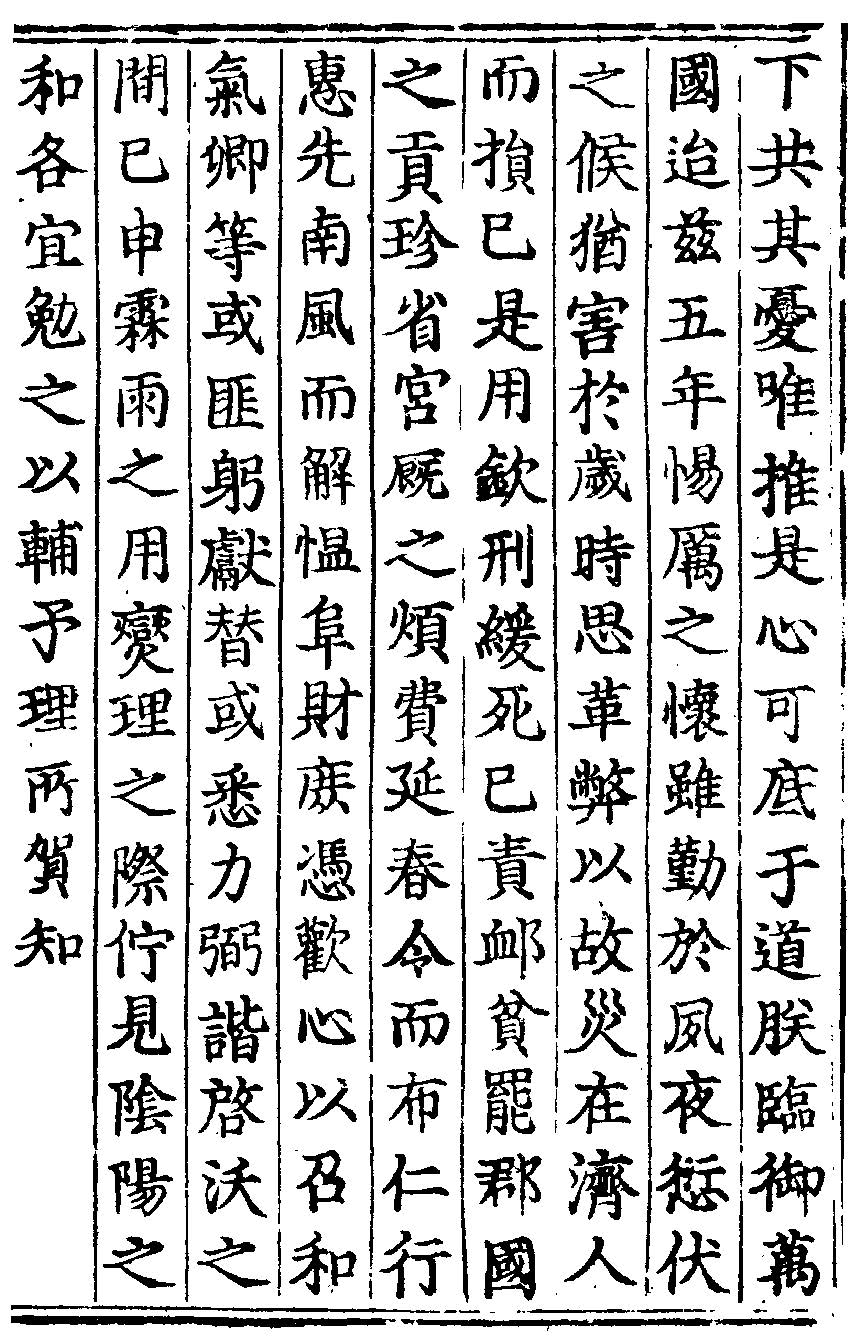 下共其憂唯推是心可底于道朕臨御萬
國迨兹五年惕厲之懷雖勤於夙夜愆伏
之候猶害於歲時思革弊以故災在濟人
而損已是用欽刑緩死已責卹貧罷郡國
之貢珍省宮厩之煩費延春令而布仁行
惠先南風而解愠阜財庶憑歡心以召和
氣卿等或匪躬獻替或悉力弼諧啓沃之
間已申霖雨之用爕理之際佇見陰陽之
和各宜勉之以輔予理所賀知